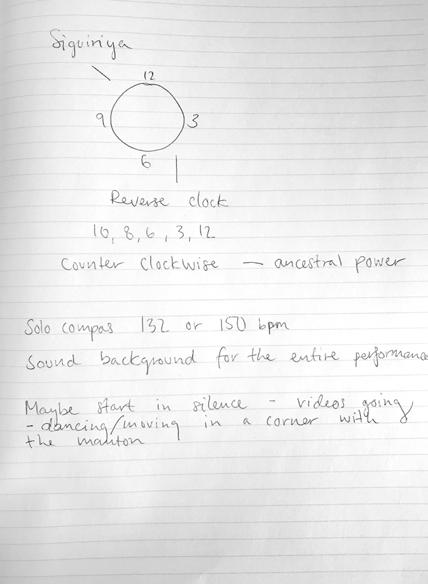 Siguiriya
12
9 3
6
Reverse clock
10, 8, 6, 3, 12
Counter Clockwise — ancestral power
Solo compas 132 or 150 bpm
Sound background for the entire performanc
Maybe start in silence - videos going
- dancing/moving in a corner with
the manton